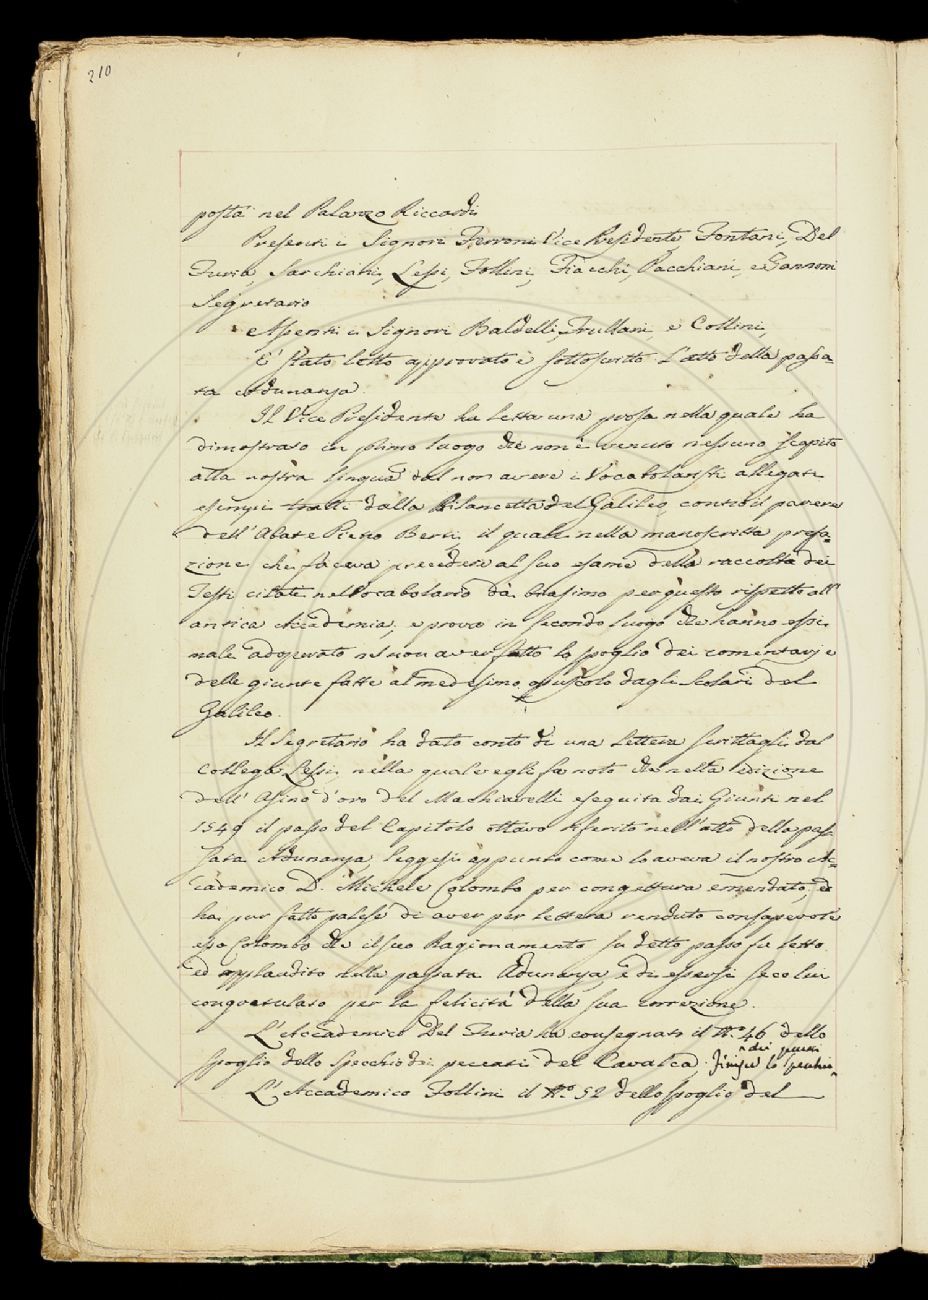 210
posta nel Palazzo Riccardi
Presenti i Signori Ferroni Vice Presidente, Fontani, Del
Furia, Sarchiani, Lessi, Follini, Fiacchi, Pacchiani, e Zannoni
Segretario
Assenti i Signori Baldelli, Frullani, e Collini,
E' stato letto approvato e sottoscritto l'atto della passa-
ta Adunanza
Il Vice Presidente ha letta una prosa nella quale ha
dimostrato in primo luogo che non è venuto nessuno scapito
alla nostra lingua dal non avere i Vocabolaristi allegati
esempi tratti dalla Bilancetta del Galileo, contro il parere
dell'Abate Pietro Berti, il quale nella manoscritta prefa-
zione che faceva precedere al suo esame della raccolta dei
Testi citati nel Vocabolario dà biasimo per questo rispetto all'
antica Accademia, e provò in secondo luogo che hanno essi
male adoperato nel non aver fatto lo spoglio dei comentarj e
delle giunte fatte al medesimo opuscolo dagli Scolari del
Galileo.
Il Segretario ha dato conto di una Lettera scrittagli dal
Collega Lessi, nella quale egli fa noto che nella edizione
dell'Asino d'oro del Machiavelli eseguita dai Giunti nel
1549 il passo del Capitolo ottavo riferito nell'atto della pas-
sata Adunanza, leggesi appunto come lo aveva il nostro Ac-
cademico D. Michele Colombo per congettura emendato; ed
ha pur fatto palese di aver per lettera renduto consapevole
esso Colombo che il suo Ragionamento su detto passo fu letto
ed applaudito nella passata Adunanza e di essersi seco lui
congratulato per la felicità della sua correzione.
L'Accademico Del Furia ha consegnato il N.º 46 dello
spoglio dello Specchio dei peccati del Cavalca,
L'Accademico Follini il N.º 52 dello spoglio del